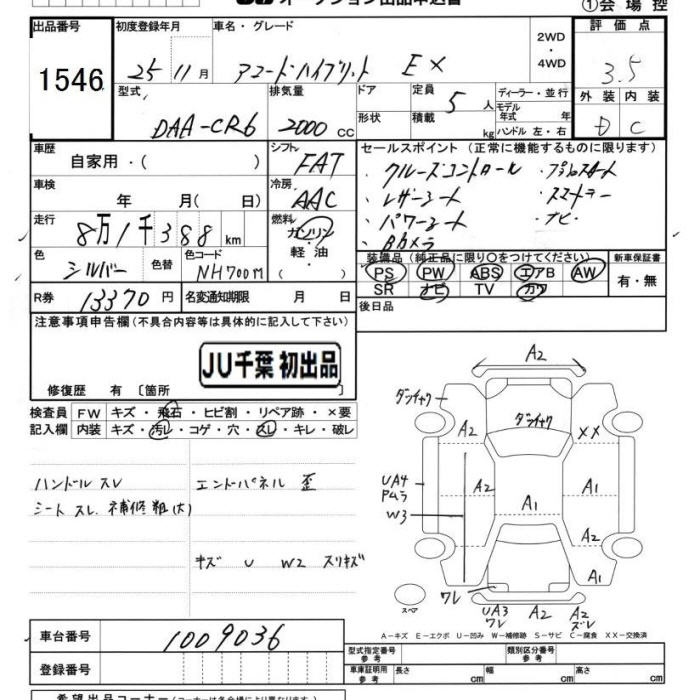 オークション出品申込書
①会場控
出品番号 初度登録年月 車名・グレード 評価点
1546 25年11月 アコードハイブリッド EX 2WD・4WD 3.5
型式 排気量 ドア 定員 5人 ディーラー・並行 外装 内装
DAA-CR6 2000cc 形状 積載 kg モデル年式 年 ハンドル 左・右 D C
車歴 自家用・( ) シフト FAT セールスポイント(正常に機能するものに限ります)
・クルーズコントロール ・プッシュスタート
車検 年 月(日) 冷房 AAC ・レザーシート ・スマートキー
走行 8万1千388km 燃料 ガソリン・軽油( ) ・パワーシート ・ナビ・
・Bカメラ
色 シルバー 色替 色コード NH700M 装備品(純正品に限り○をつけてください) 新車保証書
PS PW ABS エアB AW 有・無
SR ナビ TV カワ
R券 13370円 名変通知期限 月 日 後日品
注意事項申告欄(不具合内容等は具体的に記入して下さい)
JU千葉 初出品
修復歴 有〔箇所 〕
検査員 FW キズ・飛石・ヒビ割・リペア跡・×要
記入欄 内装 キズ・汚レ・コゲ・穴・スレ・キレ・破レ
ハンドルスレ エンドパネル 歪
シート スレ 補修粗(大)
キズ U W2 スリキズ
A2
A2 XX
UA4 A2 A1
W3 A1
A2
A1
ワレ
スペア UA3 A2 A2
ワレ ズレ
A-キズ E-エクボ U-凹み W-補修跡 S-サビ C-腐食 XX-交換済
車台番号 1009036
型式指定番号 参考 類別区分番号 参考
登録番号 車庫証明用 参考 長さ cm 幅 cm 高さ cm
希望出品コーナー(コーナーは各会場により異なります)